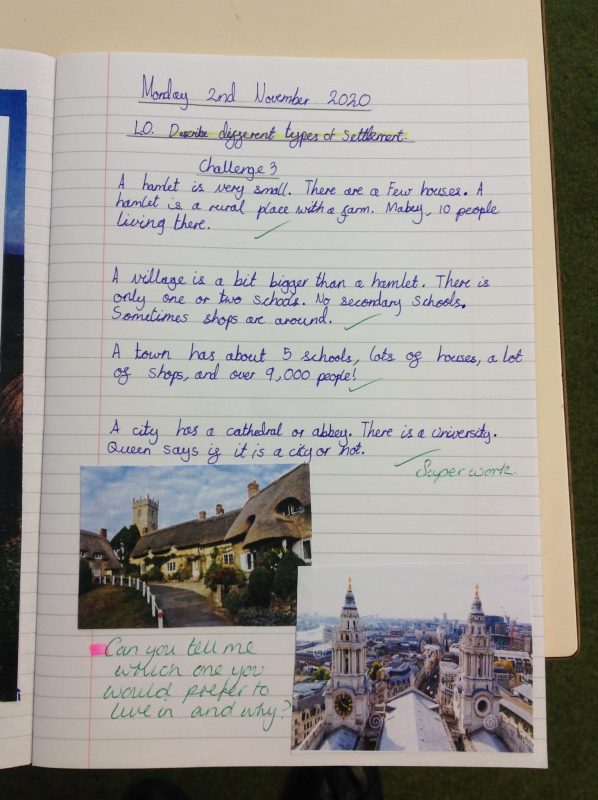 Monday 2nd November 2020
L.O. Describe different types of Settlement.
Challenge 3
A hamlet is very small. There are a Few houses. A
hamlet is a rural place with a farm. Mabey 10 people
living there.
A village is a bit bigger than a hamlet. There is
only one or two schools. No secondary schools.
Sometimes shops are around.
A town has about 5 schools, lots of houses, a lot
of shops, and over 9,000 people!
A city has a cathedral or abbey. There is a University.
Queen says if it is a city or not.
Super work.
Can you tell me
which one you
would prefer to
live in and why?